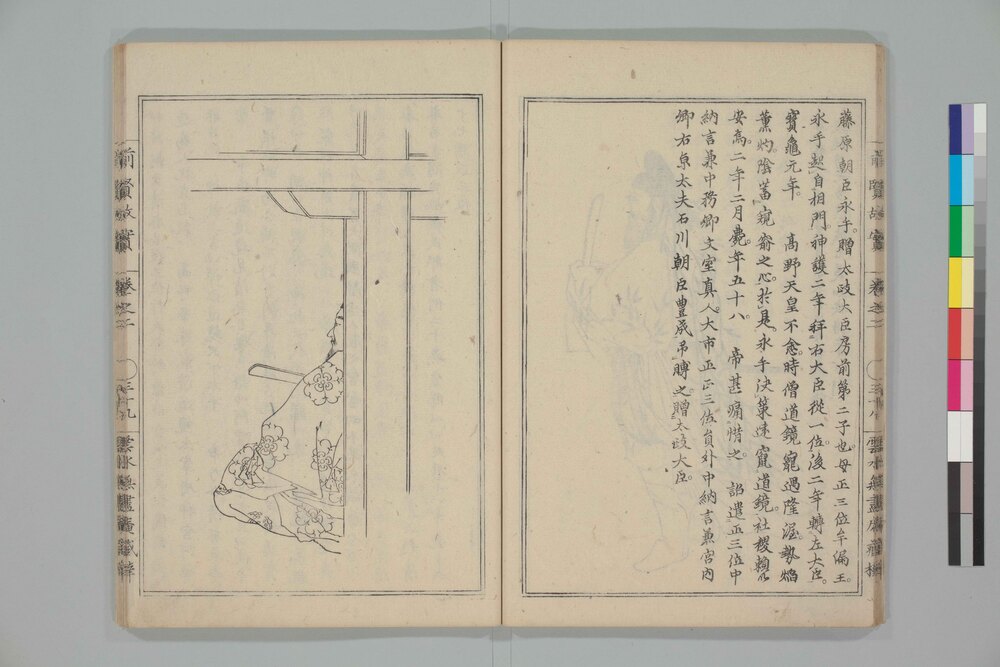 藤原朝臣永手。贈太政大臣房前第二子也。母正三位牟漏王。
永手起自相門。神護二年拜右大臣從一位。後二年轉左大臣。
寶龜元年。高野天皇不悆。時僧道鏡寵遇隆渥。勢焰
薰灼。陰蓄窺窬之心。於是永手決策遠竄道鏡。社稷賴以
安焉。二年二月薨。年五十八。帝甚痛惜之。詔遣正三位中
納言兼中務卿文室真人大市正三位員外中納言兼宮內
卿右京大夫石川朝臣豊成弔賻之。贈太政大臣。
前賢故實
卷之二